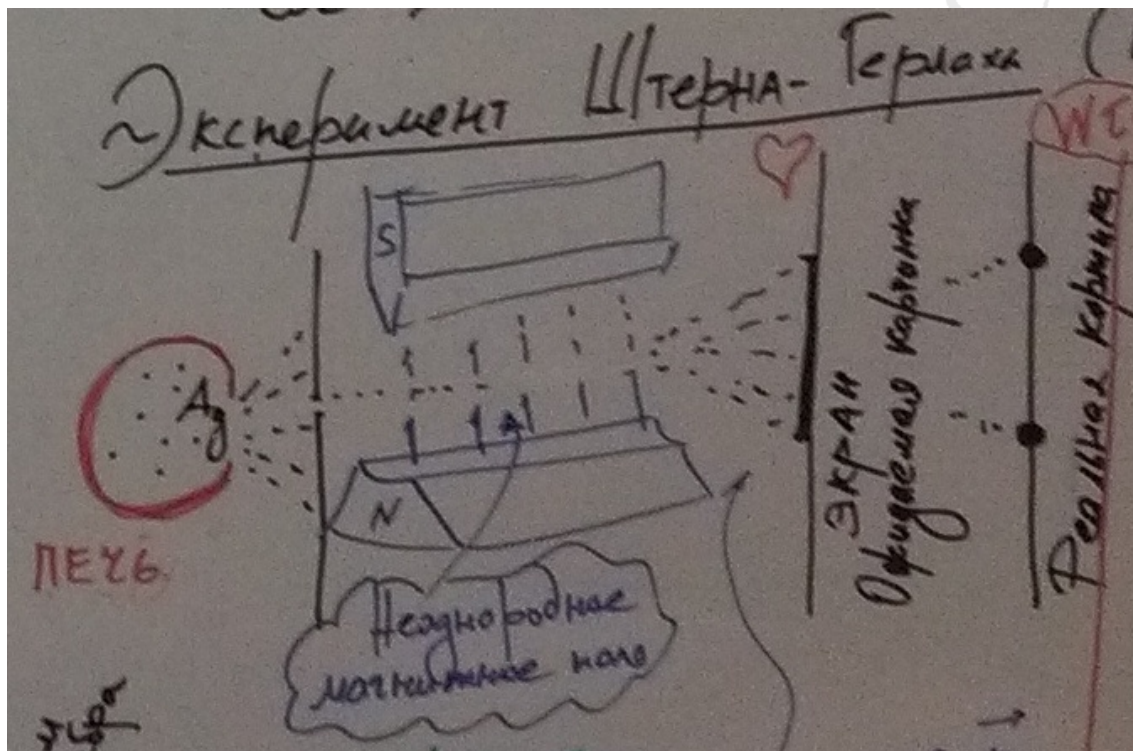 Эксперимент Штерна-Герлаха (
S
Ag
N
ПЕЧЬ
Неоднородное
магнитное поле
ЭКРАН
Ожидаемая картинка
Реальная картина